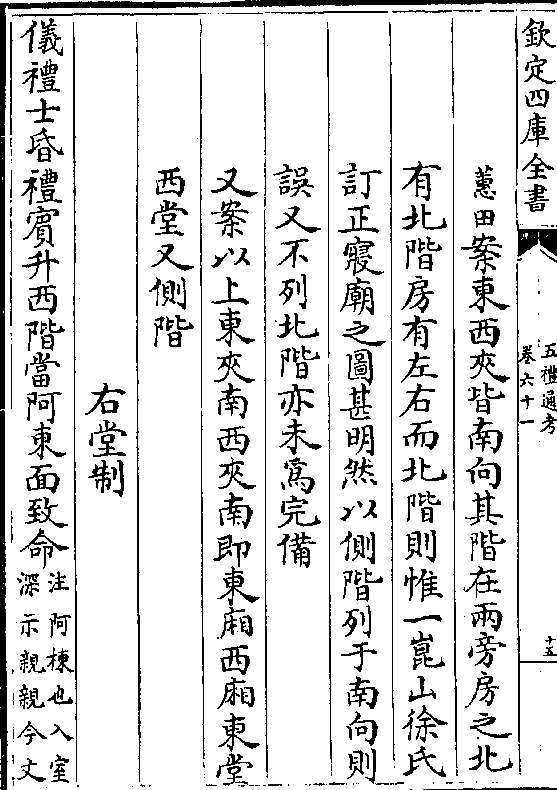 欽定四庫全書
五禮通考
卷六十一
十五
蕙田案東西夾皆南向其階在兩旁房之北
有北階房有左右而北階則惟一崑山徐氏
訂正寢廟之圖甚明然以側階列于南向則
誤又不列北階亦未爲完備
又案以上東夾南西夾南即東廂西廂東堂
西堂又側階
右堂制
儀禮士昏禮賓升西階當阿東面致命
注阿棟也入室
深示親親今文